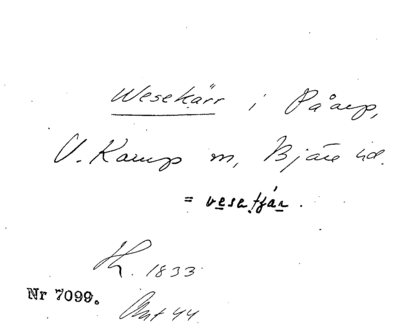 Wesekärr i Påarp,
V. Karup sn, Bjäre hd.
= vesatjär.
1833
Nr 7099.
44